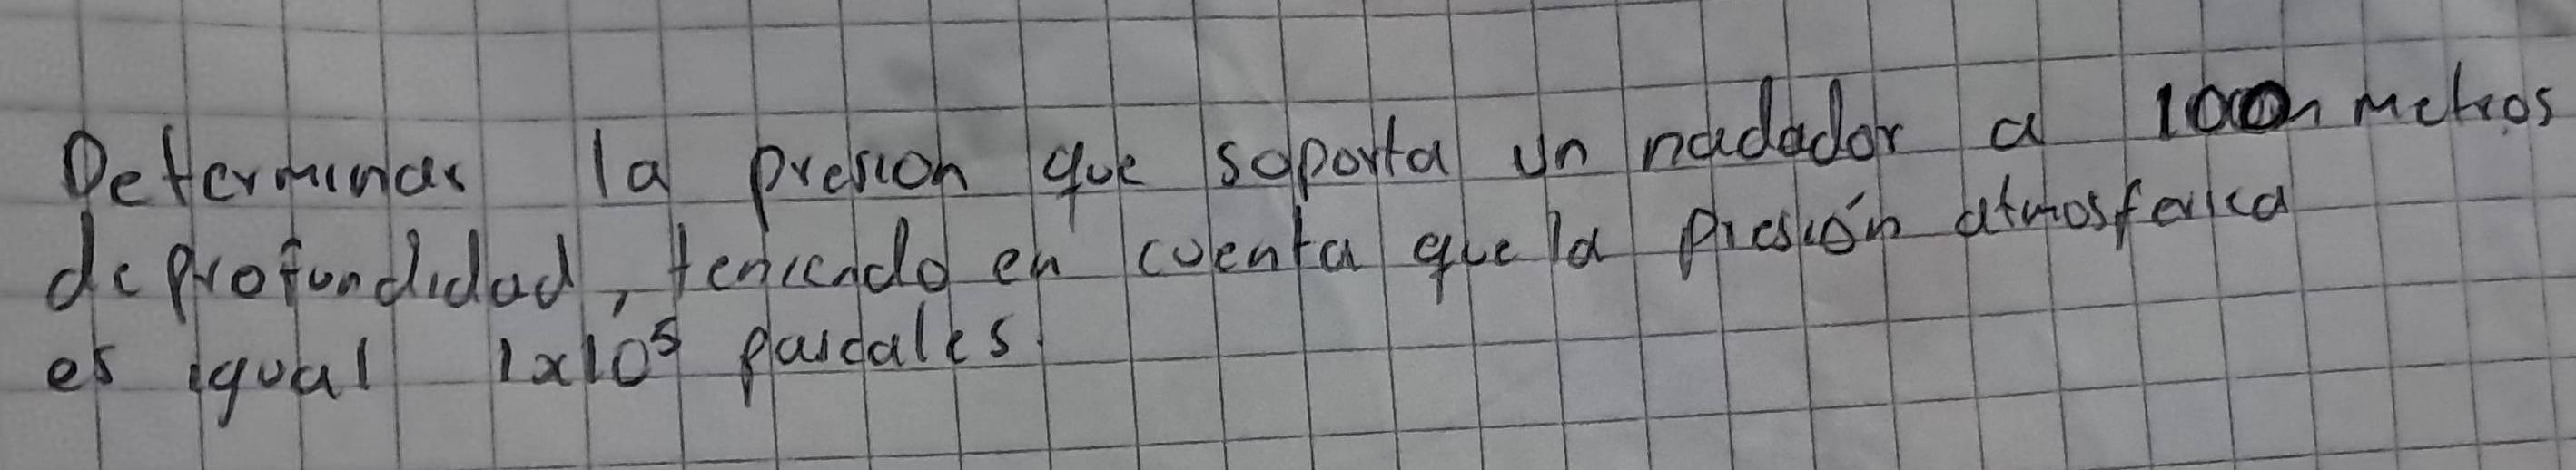 Determinar la presion que soporta un nadador a 100 metros
de profundidad, teniendo en cuenta que la presión atmosferica
es igual 1x10⁵ pascales.